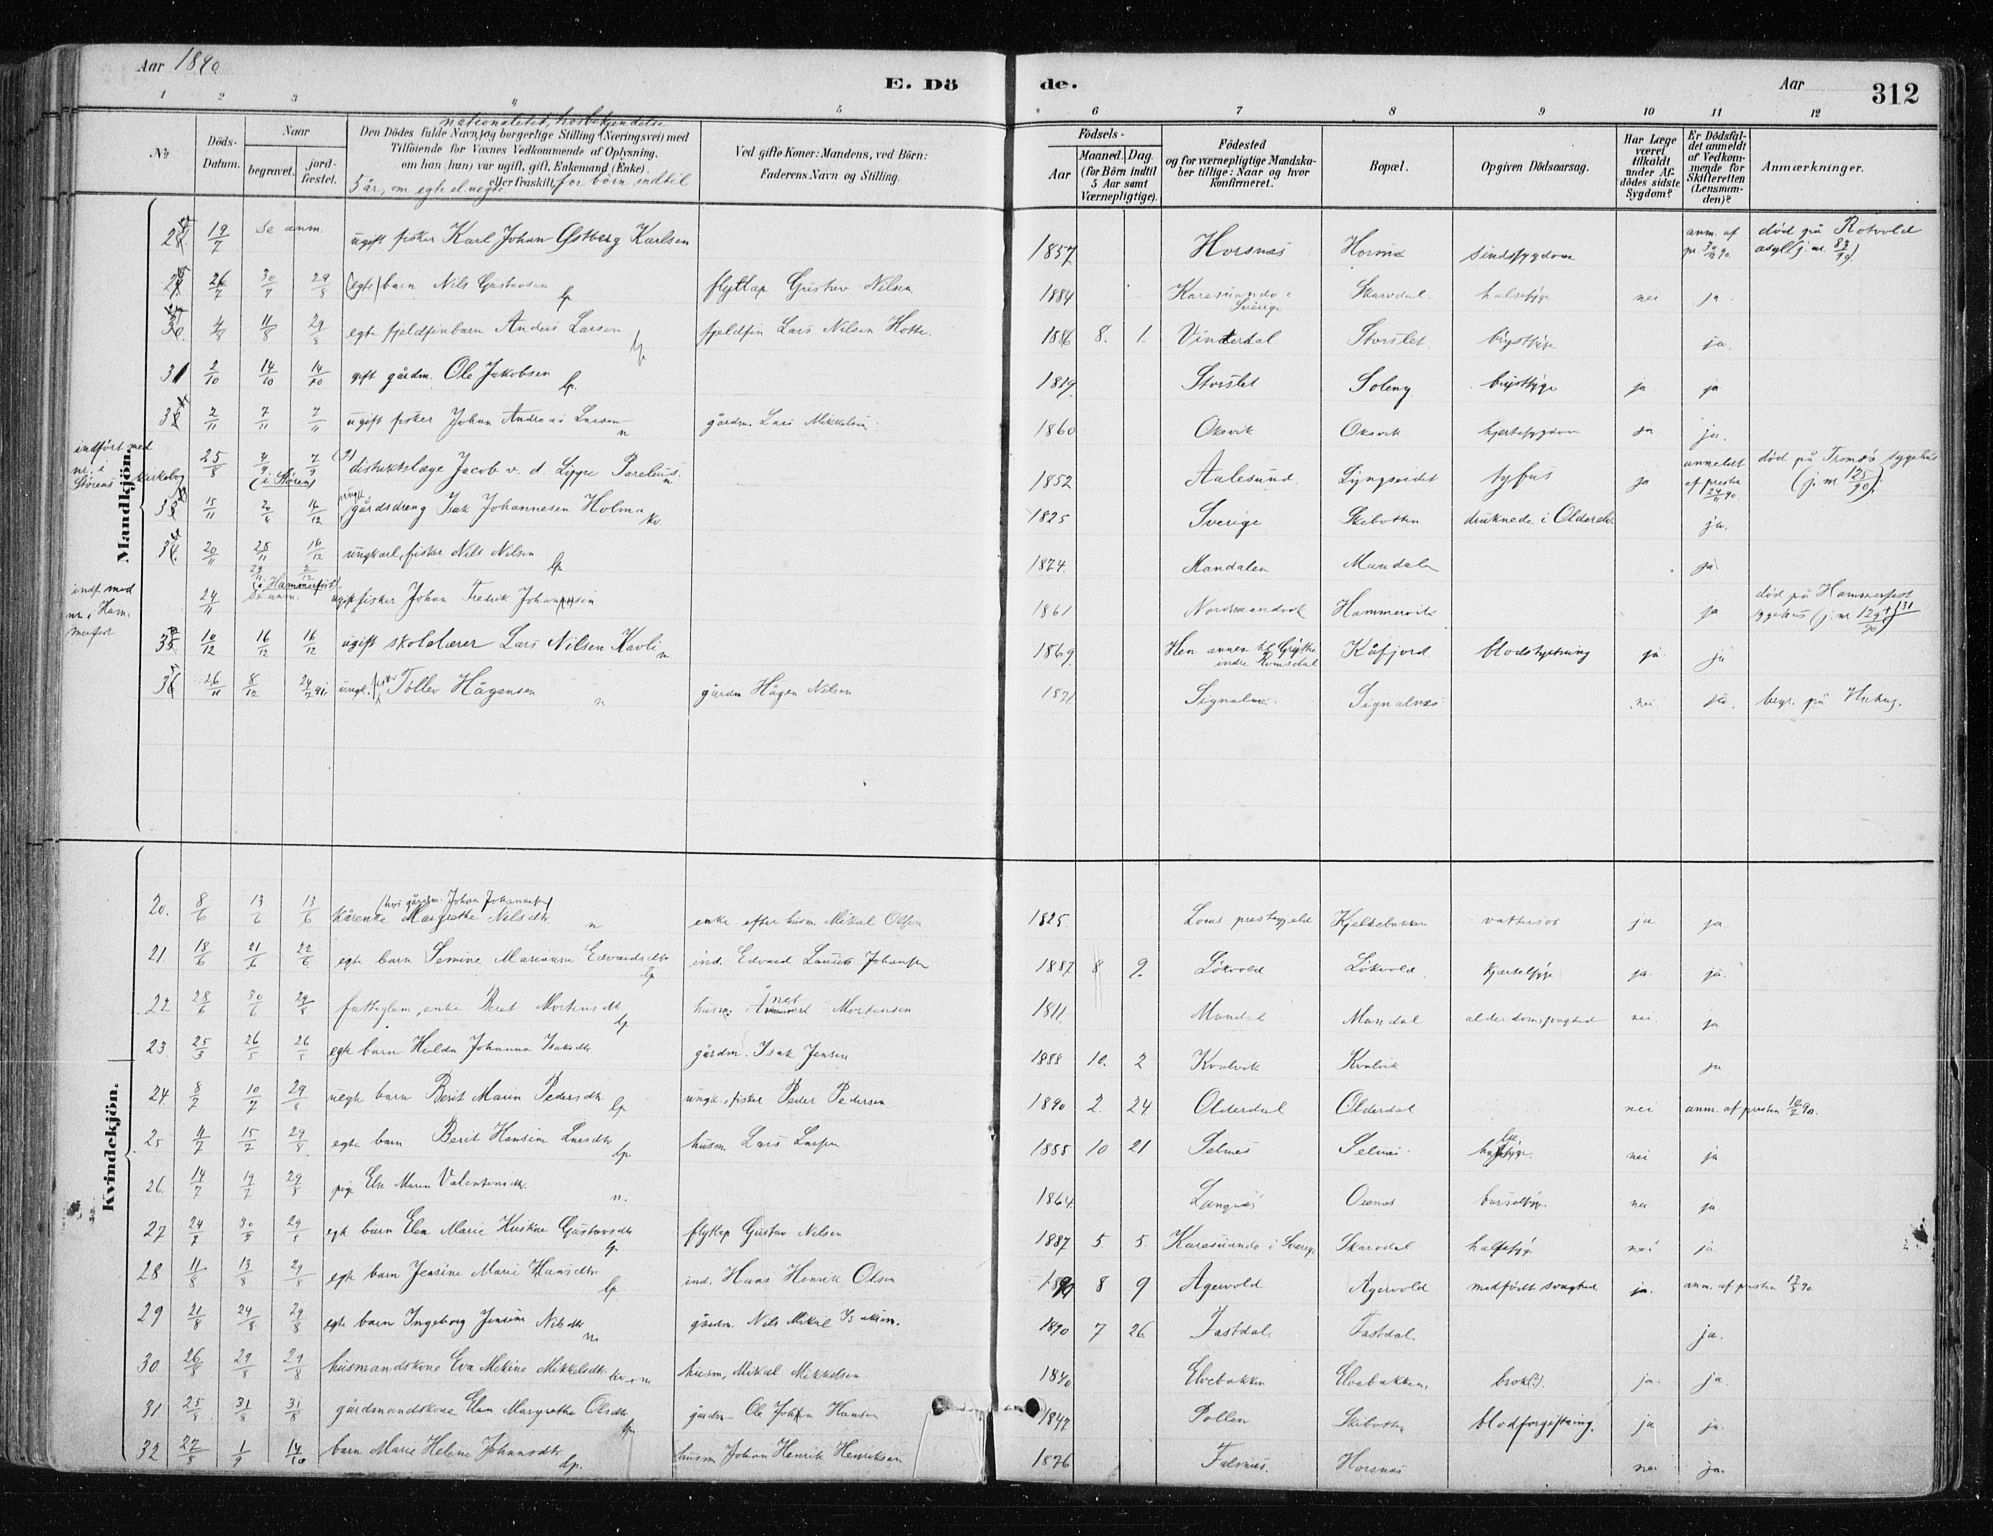 Aar 1890
E. Dö de.
Aar
312
1 2 3 4 5 6 7 8 9 10 11 12
No
Döds-Datum.
Naar
begravet.
jord-fæstet.
nationalitet, trosbekjendelse
Den Dödes fulde Navn, og borgerlige Stilling (Næringsvei) med
Tilföiende for Voxnes Vedkommende af Oplysning.
om han (hun) var ugift, gift, Enkemand (Enke).
eller fraskilt, for børn indtil
5 år, om egte el. uegte
Ved gifte Koner: Mandens, ved Börn:
Faderens Navn og Stilling.
Födsels-
Aar
Maaned.
Dag.
(for Börn indtil 5 Aar samt Værnepligtige).
Födested
og for værnepligtige Mandska-
ber tillige: Naar og hvor
konfirmeret.
Bopæl.
Opgiven Dödsaarsag.
Har Læge været tilkaldt under Af-dödes sidste Sygdom?
Er Dödsfal-det anmeldt af Vedkom-mende for Skifteretten (Lensman-den)?
Anmærkninger.
Mandkjön.
19/7 se anm. ugift fisker Karl Johan Østberg Karlsen 1857 Horsnæs Horsnæs sindssygdom anm. af død på Rotvold
asyl (j. nr. 83/90)
26/7 30/7 29/8 (egte) barn Nils Gustavsen lp flytlap Gustav Nilsen 1884 Karesuando i Sverige Skarvdal halssyge nei ja.
4/8 11/8 29/8 egte fjeldfinbarn Anders Larsen lp fjeldfin Lars Nilsen Hotte. 1886 8. 1. Storslet brystsyge ja.
31 2/10 14/10 14/10 gift gårdm. Ole Jakobsen lp. 1819 Storslet Soleng brystsyge ja ja
2/11 7/11 7/11 ugift fisker Johan Andreas Larsen n gårdm. Lars Mikkelsen. 1860 Oksvik Oksvik hjertesygdom ja ja.
indført med nr. i Størens kirkebog
25/8 4/9 7/9 (i Støren) distriktslæge Jacob v. d. Lippe Parelius n 1852 Aalesund Lyngseidet tyfus ja anmeldt af presten 24/11 90. død på Tromsø sygehus
(j. nr 125/90)
15/11 14/12 ungk. gårdsdreng Isak Johannesen Holma kv. 1825 Sverige Skibotten druknede i Olderelv. ja.
20/11 28/11 16/12 ungkarl, fisker Nils Nilsen lp 1874. Mandalen Mandalen ja.
indf. med nr. i Hammerfest
24/11 29/11 2/12 (i Hammerfest) Se anm. ugift fisker Johan Fredrik Johannesen 1861 Nordmandvik Hammervik ja død på Hammerfest
sygehus (j. nr 129+131/90)
10/12 16/12 16/12 ugift skolelærer Lars Nilsen Kavli n 1869 Hen annex til Grytten indre Romsdal Kåfjord. blodstyrtning ja. ja
26/11 8/12 24/2 91. ungk. fisker Tollev Hågensen n gårdm Hågen Nilsen 1871 Signalnes. Signalnæs nei ja. begr. på
Kvindekjön.
20. 8/6 13/6 13/6 (hos gårdm. Johan Johannesen) kårenke Margrethe Nilsdtr n enke efter husm. Mikal Olsen 1825. Loms prestegjeld Kjelkebakken vattersot ja ja
21. 18/6 21/6 22/6 egte barn Semine Marianne Edvardsdtr lp ind. Edvard Laurits Johansen 1887 8 9. Løkvold Løkvold kjertelsyge ja. ja.
22 28/6 30/6 29/8 fattiglem, enke Beret Mortensdtr lp husm. Mortensen 1811 Mandal Mandal alderdomssvaghed nei. ja
23 26/5 26/5 egte barn Hilda Johanna Isaksdtr gårdm. Isak Jensen 1888 10. 2 Kvalvik Kvalvik ja
24. 8/7 10/7 29/8 uegte barn Berit Marin Pedersdtr. lp ungk., fisker Peder Pedersen 1890 2. 24. Olderdal Olderdal nei anm. af presten
25 11/7 15/7 29/8 egte barn Berit Hansine Larsdtr lp husm. Lars Larsen 1885 10 21 Selnes Selnes halssyge. nei ja
26. 14/7 19/7 29/8 pige Else Maren Valentinsdtr. n. 1864 Langnes barselsyge. nei ja
27 24/7 30/7 29/8 egte barn Elen Marie Kirstine Gustavsdtr lp flytlap Gustav Nilsen 1887 5. 5. Karesuando i Sverige Skarvdal halssyge nei ja.
28 11/8 13/8 29/8 egte barn Jensine Marie Hansdtr lp ind. Hans Henrik Olsen 8 9 Agervold Agervold medfødt svaghed ja. anm. af presten 13/8 90
29 21/8 24/8 29/8 egte barn Ingeborg Jensine Nilsdtr n gårdm. Nils Mikal Isaksen. 1890 7 26. Fastdal Fastdal ja.
30 26/8 29/8 29/8 husmandskone Eva Mekine Mikkelsdtr kv.-n husm, Mikal Mikkelsen 1840 Elvebakken Elvebakken. brok(?). ja. ja.
31. 25/8 31/8 31/8 gårdmandskone Elen Margrethe Olsdtr lp gårdm. Ole Johan Hansen 1847 Pollen Skibotten blodforgiftning. ja ja.
32 27/8 1/9 14/10 barn Marie Helene Johansdtr lp. husm Johan Henrik Henriksen 1876 Falsnes. Horsnæs nei ja.